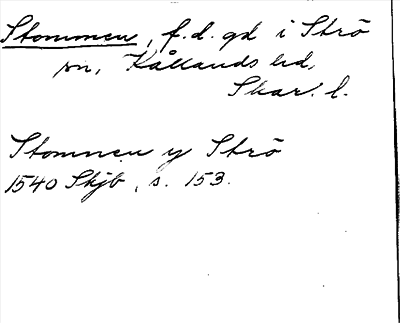 Stommen, f.d. gd i Strö
sn, Kållands hd,
Skar. l.
Stomnen y Strö
1540 Skjb, s. 153.